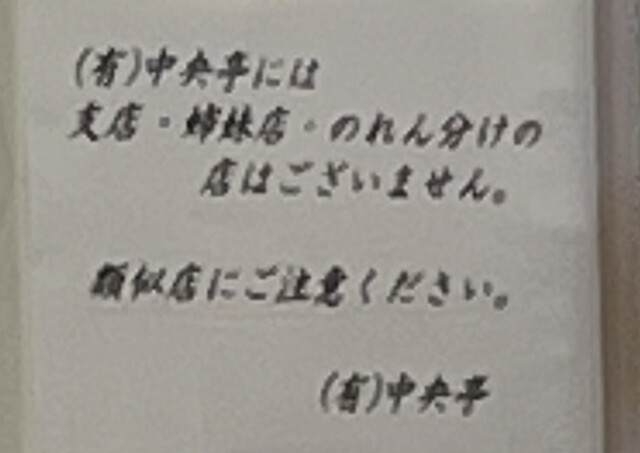 (有)中央亭には
支店・姉妹店・のれん分けの
店はございません。
類似店にご注意ください。
(有)中央亭